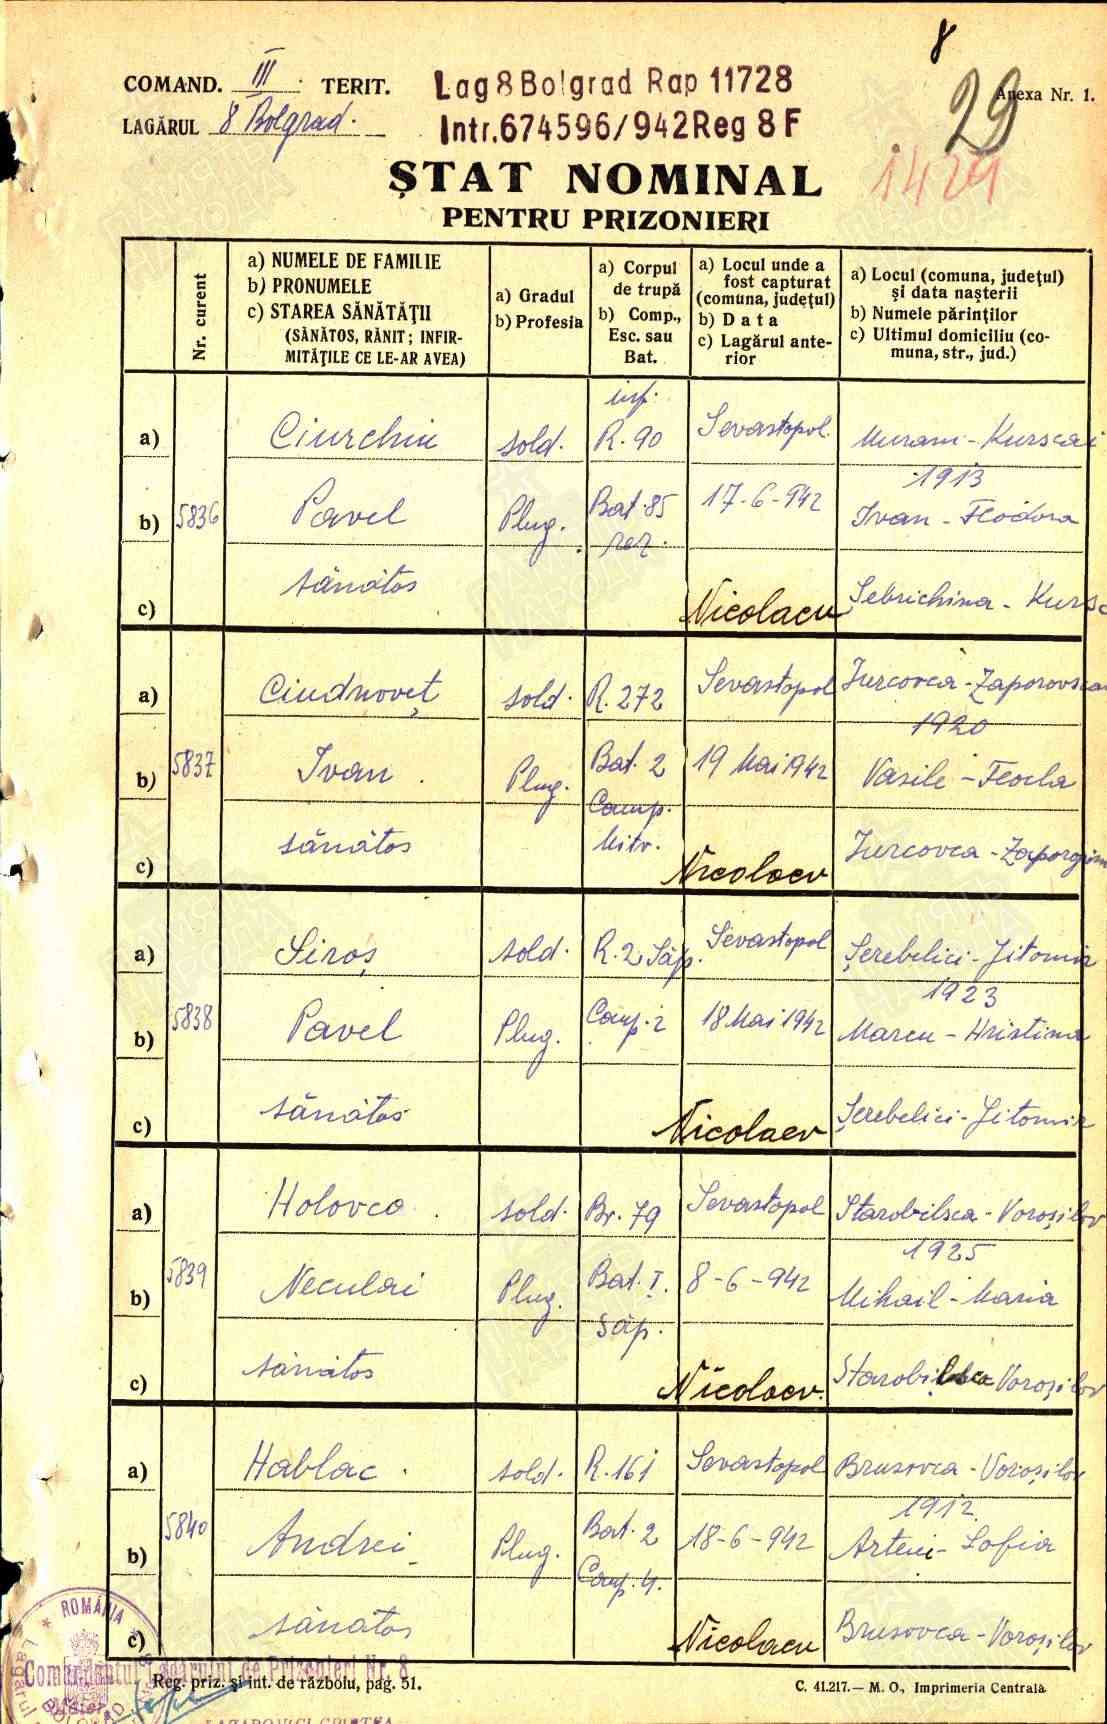 8
COMAND. III TERIT.
LAGĂRUL 8 Bolgrad.
Lag 8 Bolgrad Rap 11728
Intr. 674596/942 Reg 8 F
Anexa Nr. 1.
29
1429
ȘTAT NOMINAL
PENTRU PRIZONIERI
Nr. curent
a) NUMELE DE FAMILIE
b) PRONUMELE
c) STAREA SĂNĂTĂȚII
(SĂNĂTOS, RĂNIT; INFIR-
MITĂȚILE CE LE-AR AVEA)
a) Gradul
b) Profesia
a) Corpul
de trupă
b) Comp.,
Esc. sau
Bat.
a) Locul unde a
fost capturat
(comuna, județul)
b) Data
c) Lagărul ante-
rior
a) Locul (comuna, județul)
și data nașterii
b) Numele părinților
c) Ultimul domiciliu (co-
muna, str., jud.)
5836
a) Ciurchin sold. inf. R. 90 Sevastopol. Murani - Kurscai
1913
b) Pavel Plug. Bat. 85 rez. 17-6-942 Ivan - Feodora
c) sănătos Nicolaev Sebrichina - Kursc
5837
a) Ciudnoveț sold. R. 272 Sevastopol Jurcovca - Zaporovscai
1920
b) Ivan Plug. Bat. 2 Comp. Mitr. 19 Mai 1942 Vasile - Feocla
c) sănătos Nicolaev Jurcovca -
5838
a) Siroș sold. R. 2 Săp. Sevastopol Șerebelici - Jitomir
1923
b) Pavel Plug. Comp. 2 18 Mai 1942 Marcu - Hristina
c) sănătos Nicolaev Șerebelici - Jitomir
5839
a) Holovco sold. Br. 79 Sevastopol Starobilsca - Voroșilov
1925
b) Neculai Plug. Bat. I. Săp. 8-6-942 Mihail - Maria
c) sănătos Nicolaev. Starobilsca Voroșilov
5840
a) Hablac sold. R. 161 Sevastopol Brusovca - Voroșilov
1912
b) Andrei Plug. Bat. 2 Comp. 4. 18-6-942 Artemi - Sofia
c) sănătos Nicolaev Brusovca - Voroșilov
ROMÂNIA
Comandantul Lagărului de Prizonieri Nr. 8
Reg. priz. și int. de războiu, pag. 51.
C. 41.217.— M. O., Imprimeria Centrală